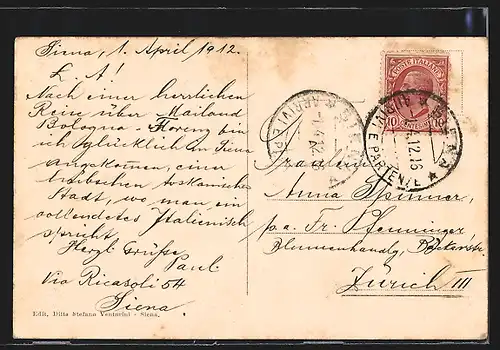 Siena, 1. April 1912.
L. A!
Nach einer herrlichen
Reise über Mailand
Bologna - Florenz bin
ich glücklich in Siena
angekomen, eine
hübschen toskanischen
Stadt, wo man ein
vollendetes Italienisch
spricht.
Herzl. Grüße
Paul
Via Ricasoli 54
Siena
Edit. Ditta Stefano Venturini - Siena.
POSTE ITALIANE
10
ARRIVI E PARTENZE
Fräulein
Anna Spinner,
p.a. Fr. Pfenninger,
Blumenhandlg, Bäckerstr.
Zürich III